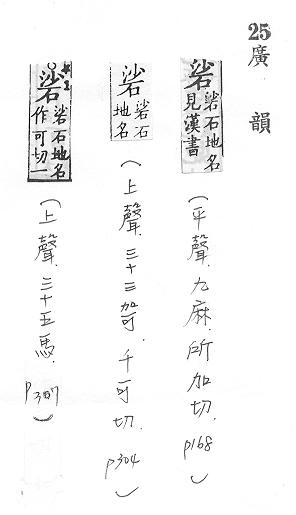 25廣韻
硰硰石地名見漢書(平聲.九麻.所加切.p168)
硰硰石地名(上聲.三十三哿.千可切.p304)
硰硰石地名作可切一(上聲.三十五馬.p307)